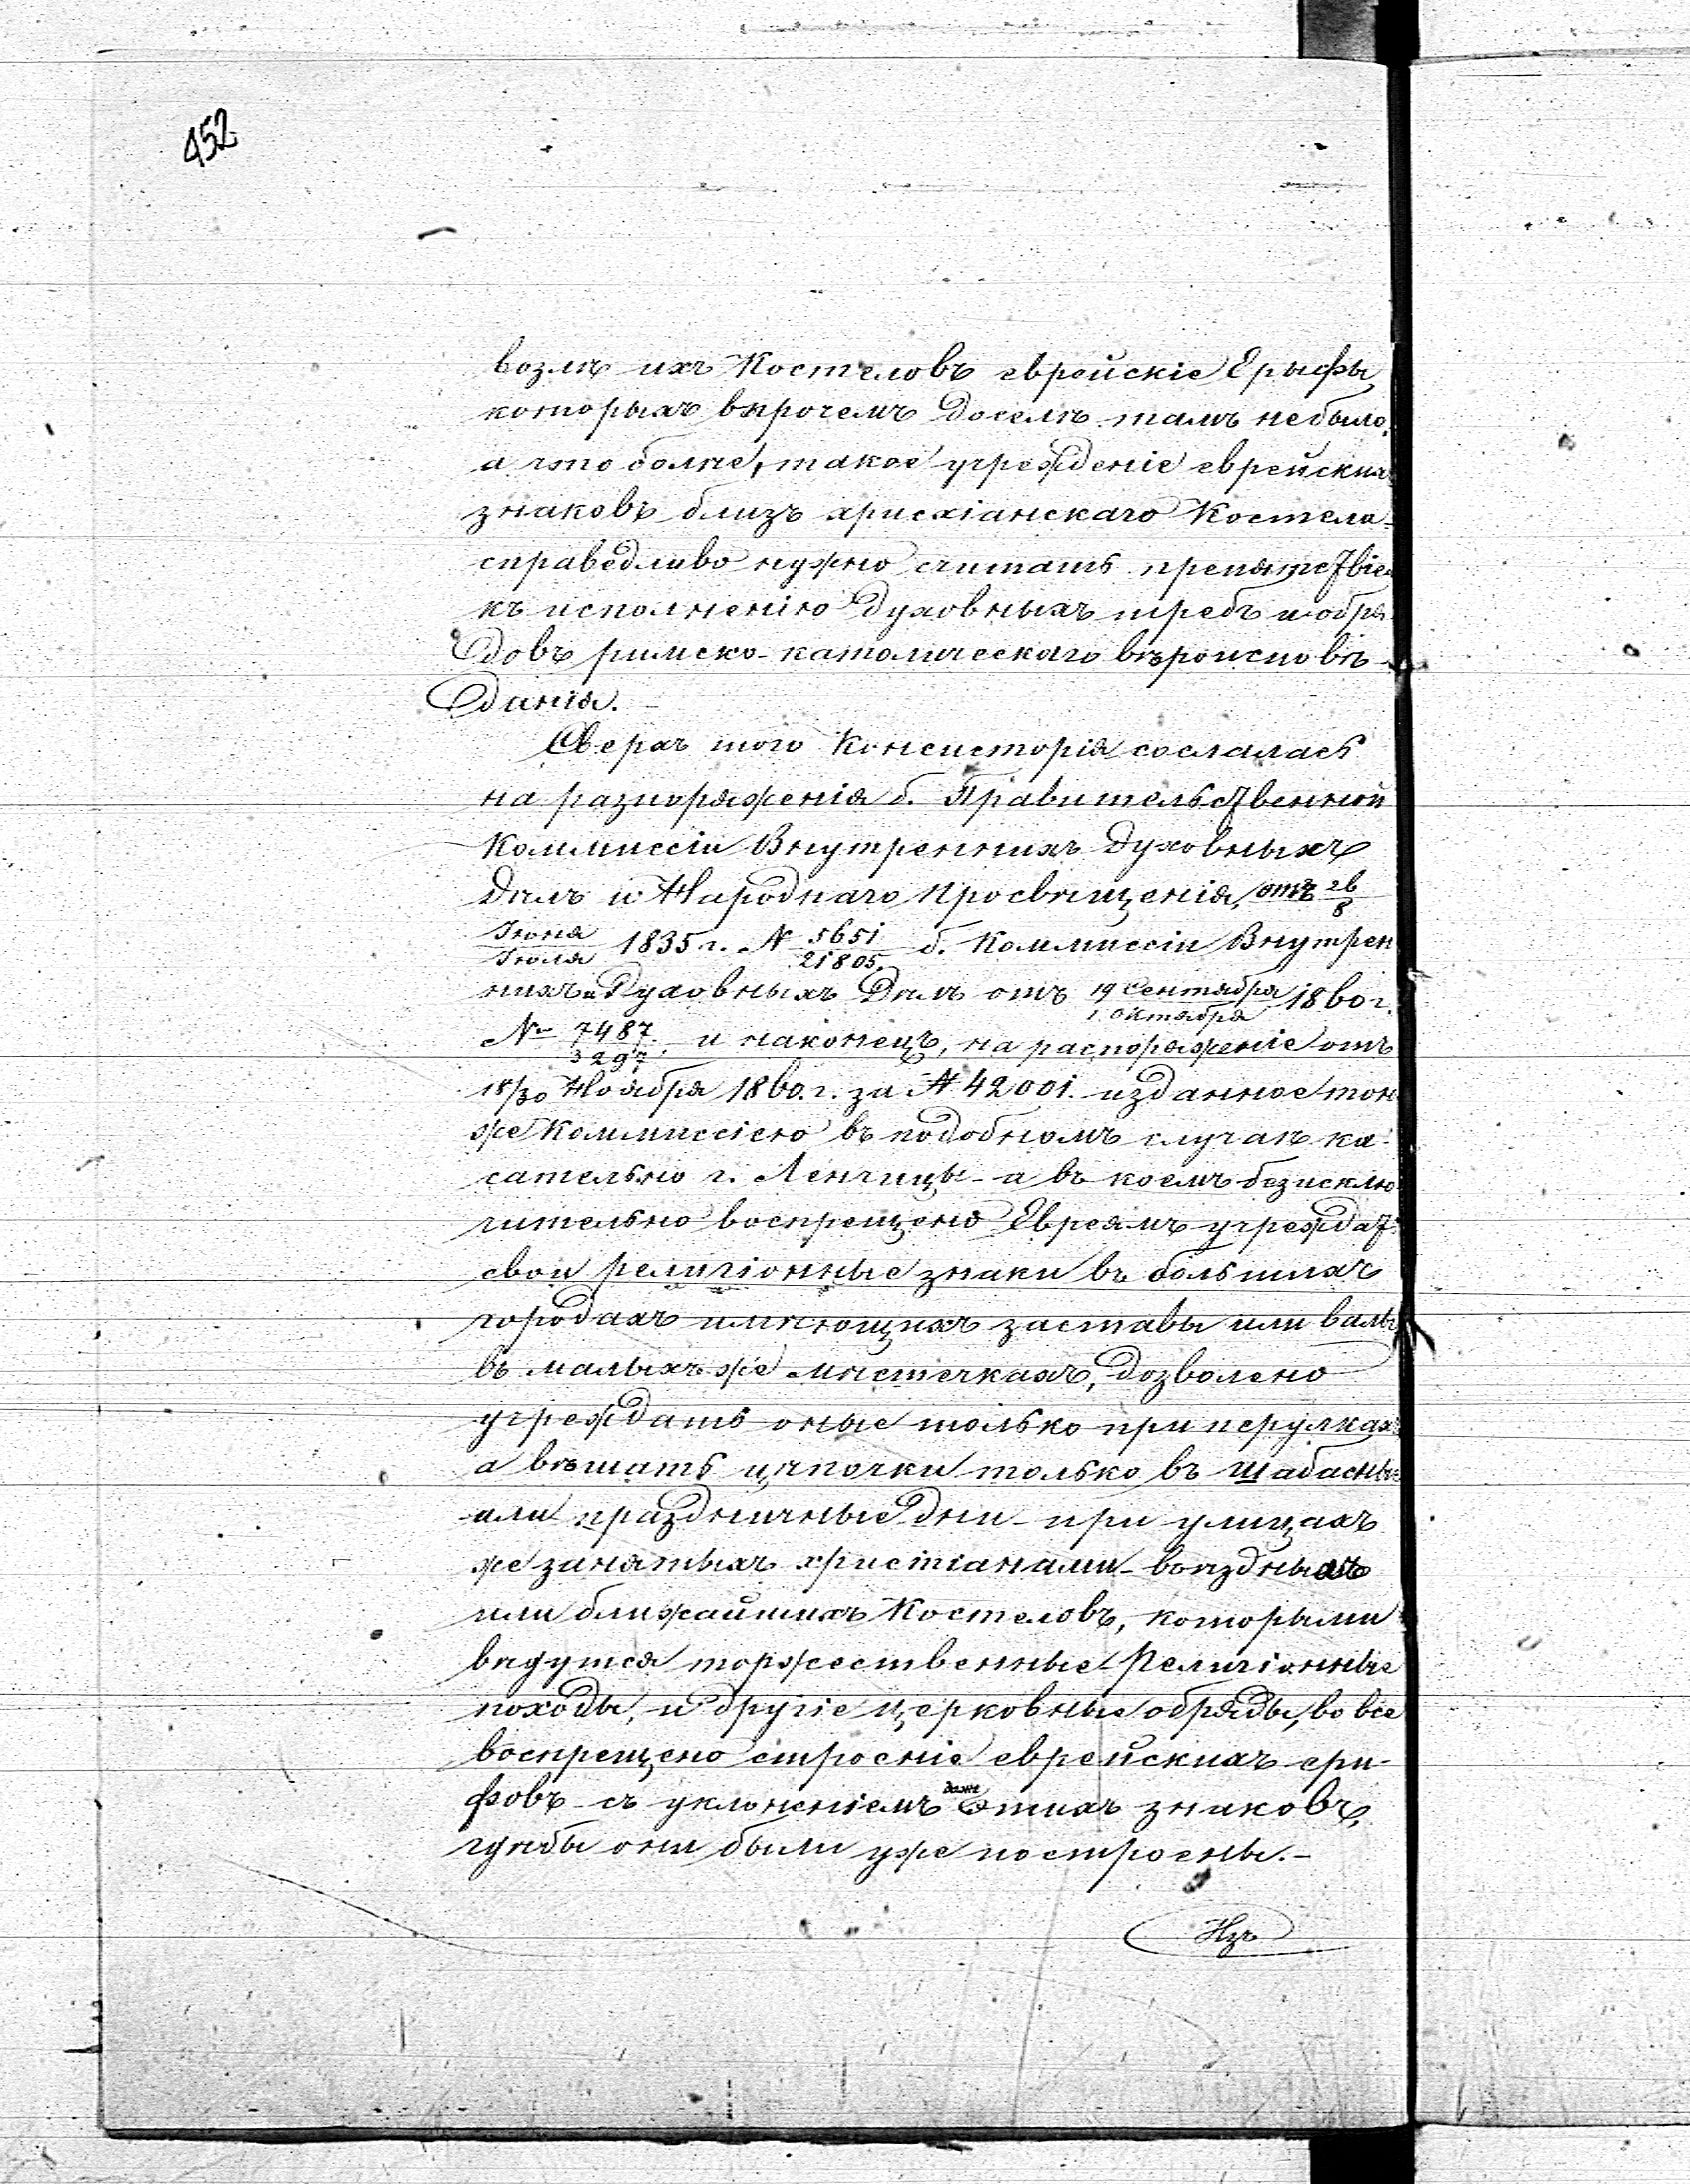 452
возлѣ ихъ Костеловъ еврейскіе Ерыфы,
которыхъ впрочемъ доселѣ тамъ небыло,
а что болѣе, такое учрежденіе еврейских
знаковъ близъ христіанскаго Костела
справедливо нужно считать препятствіе
къ исполненію духовныхъ требъ и обря
довъ римско-католическаго вѣроисповѣ-
данія.
Сверхъ того Консисторія сослалась
на разпоряженія б. Правительственной
Коммиссіи Внутреннихъ Духовныхъ
Дѣлъ и Народнаго Просвѣщенія, отъ 26/8
Іюня/Іюля 1835 г. N 5651/21805. б. Коммиссіи Внутрен
нихъ и Духовныхъ Дѣлъ отъ 19 Сентября/1 Октября 1860 г.
№ 7487/3297. и наконецъ, на распоряженіе отъ
18/30 Ноября 1860. г. за N 42001. изданное тою
же Коммиссіею въ подобномъ случаѣ ка-
сательно г. Ленчицы - а въ коемъ безисклю
чительно воспрещено Евреямъ учреждат
свои религіонные знаки въ большихъ
городахъ имѣющихъ заставы или валы
въ малыхъ же мѣстечкахъ, дозволено
учреждать оные только при переулках
а вѣшать цѣпочки только въ шабасные
или праздничные дни - при улицахъ
же занятыхъ христіанами - въѣздныхъ
или ближайшихъ Костеловъ, которыми
ведутся торжественные Религіонные
походы, и другіе церковные обряды, во все
воспрещено строеніе еврейскихъ ери-
фовъ - съ уклоненіемъ даже этихъ знаковъ,
гдѣбы они были уже построены. -
Изъ